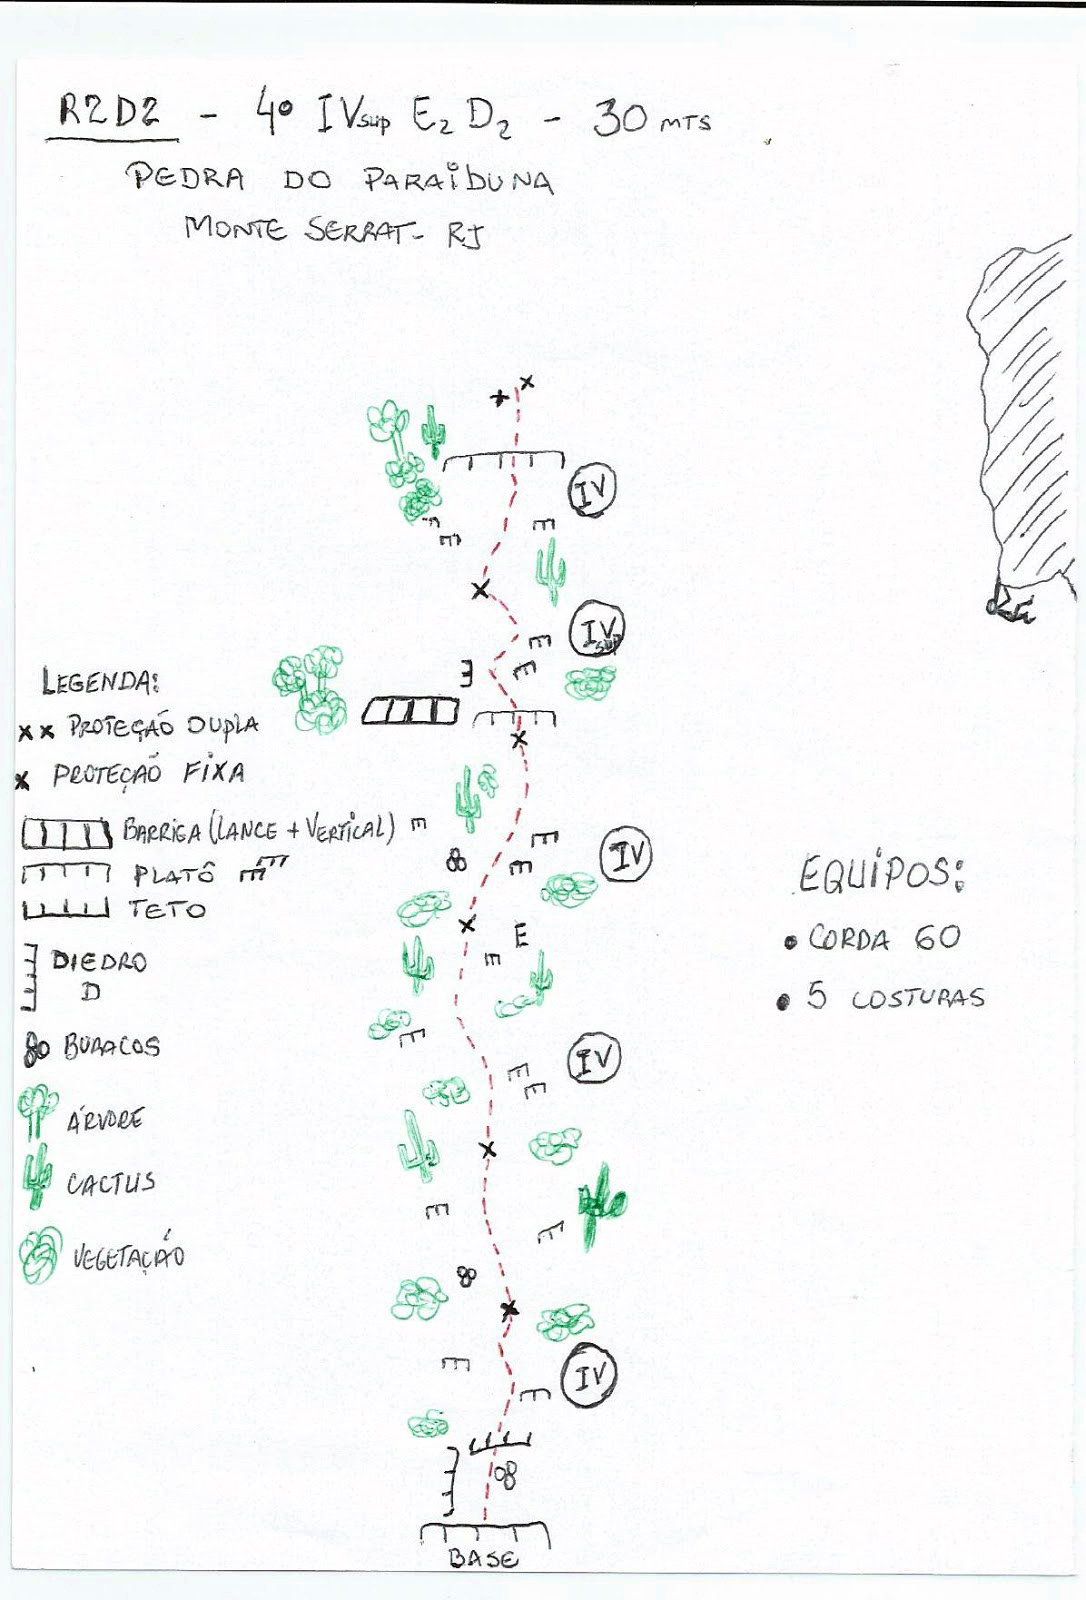 R2D2 - 4º IVsup E2 D2 - 30 MTS
PEDRA DO PARAIBUNA
MONTE SERRAT - RJ
IV
IVsup
LEGENDA:
x x PROTEÇÃO DUPLA
x PROTEÇÃO FIXA
BARRIGA (LANCE + VERTICAL)
PLATÔ
TETO
DIEDRO
D
BURACOS
ÁRVORE
CACTUS
VEGETAÇÃO
IV
IV
IV
BASE
EQUIPOS:
• CORDA 60
• 5 COSTURAS